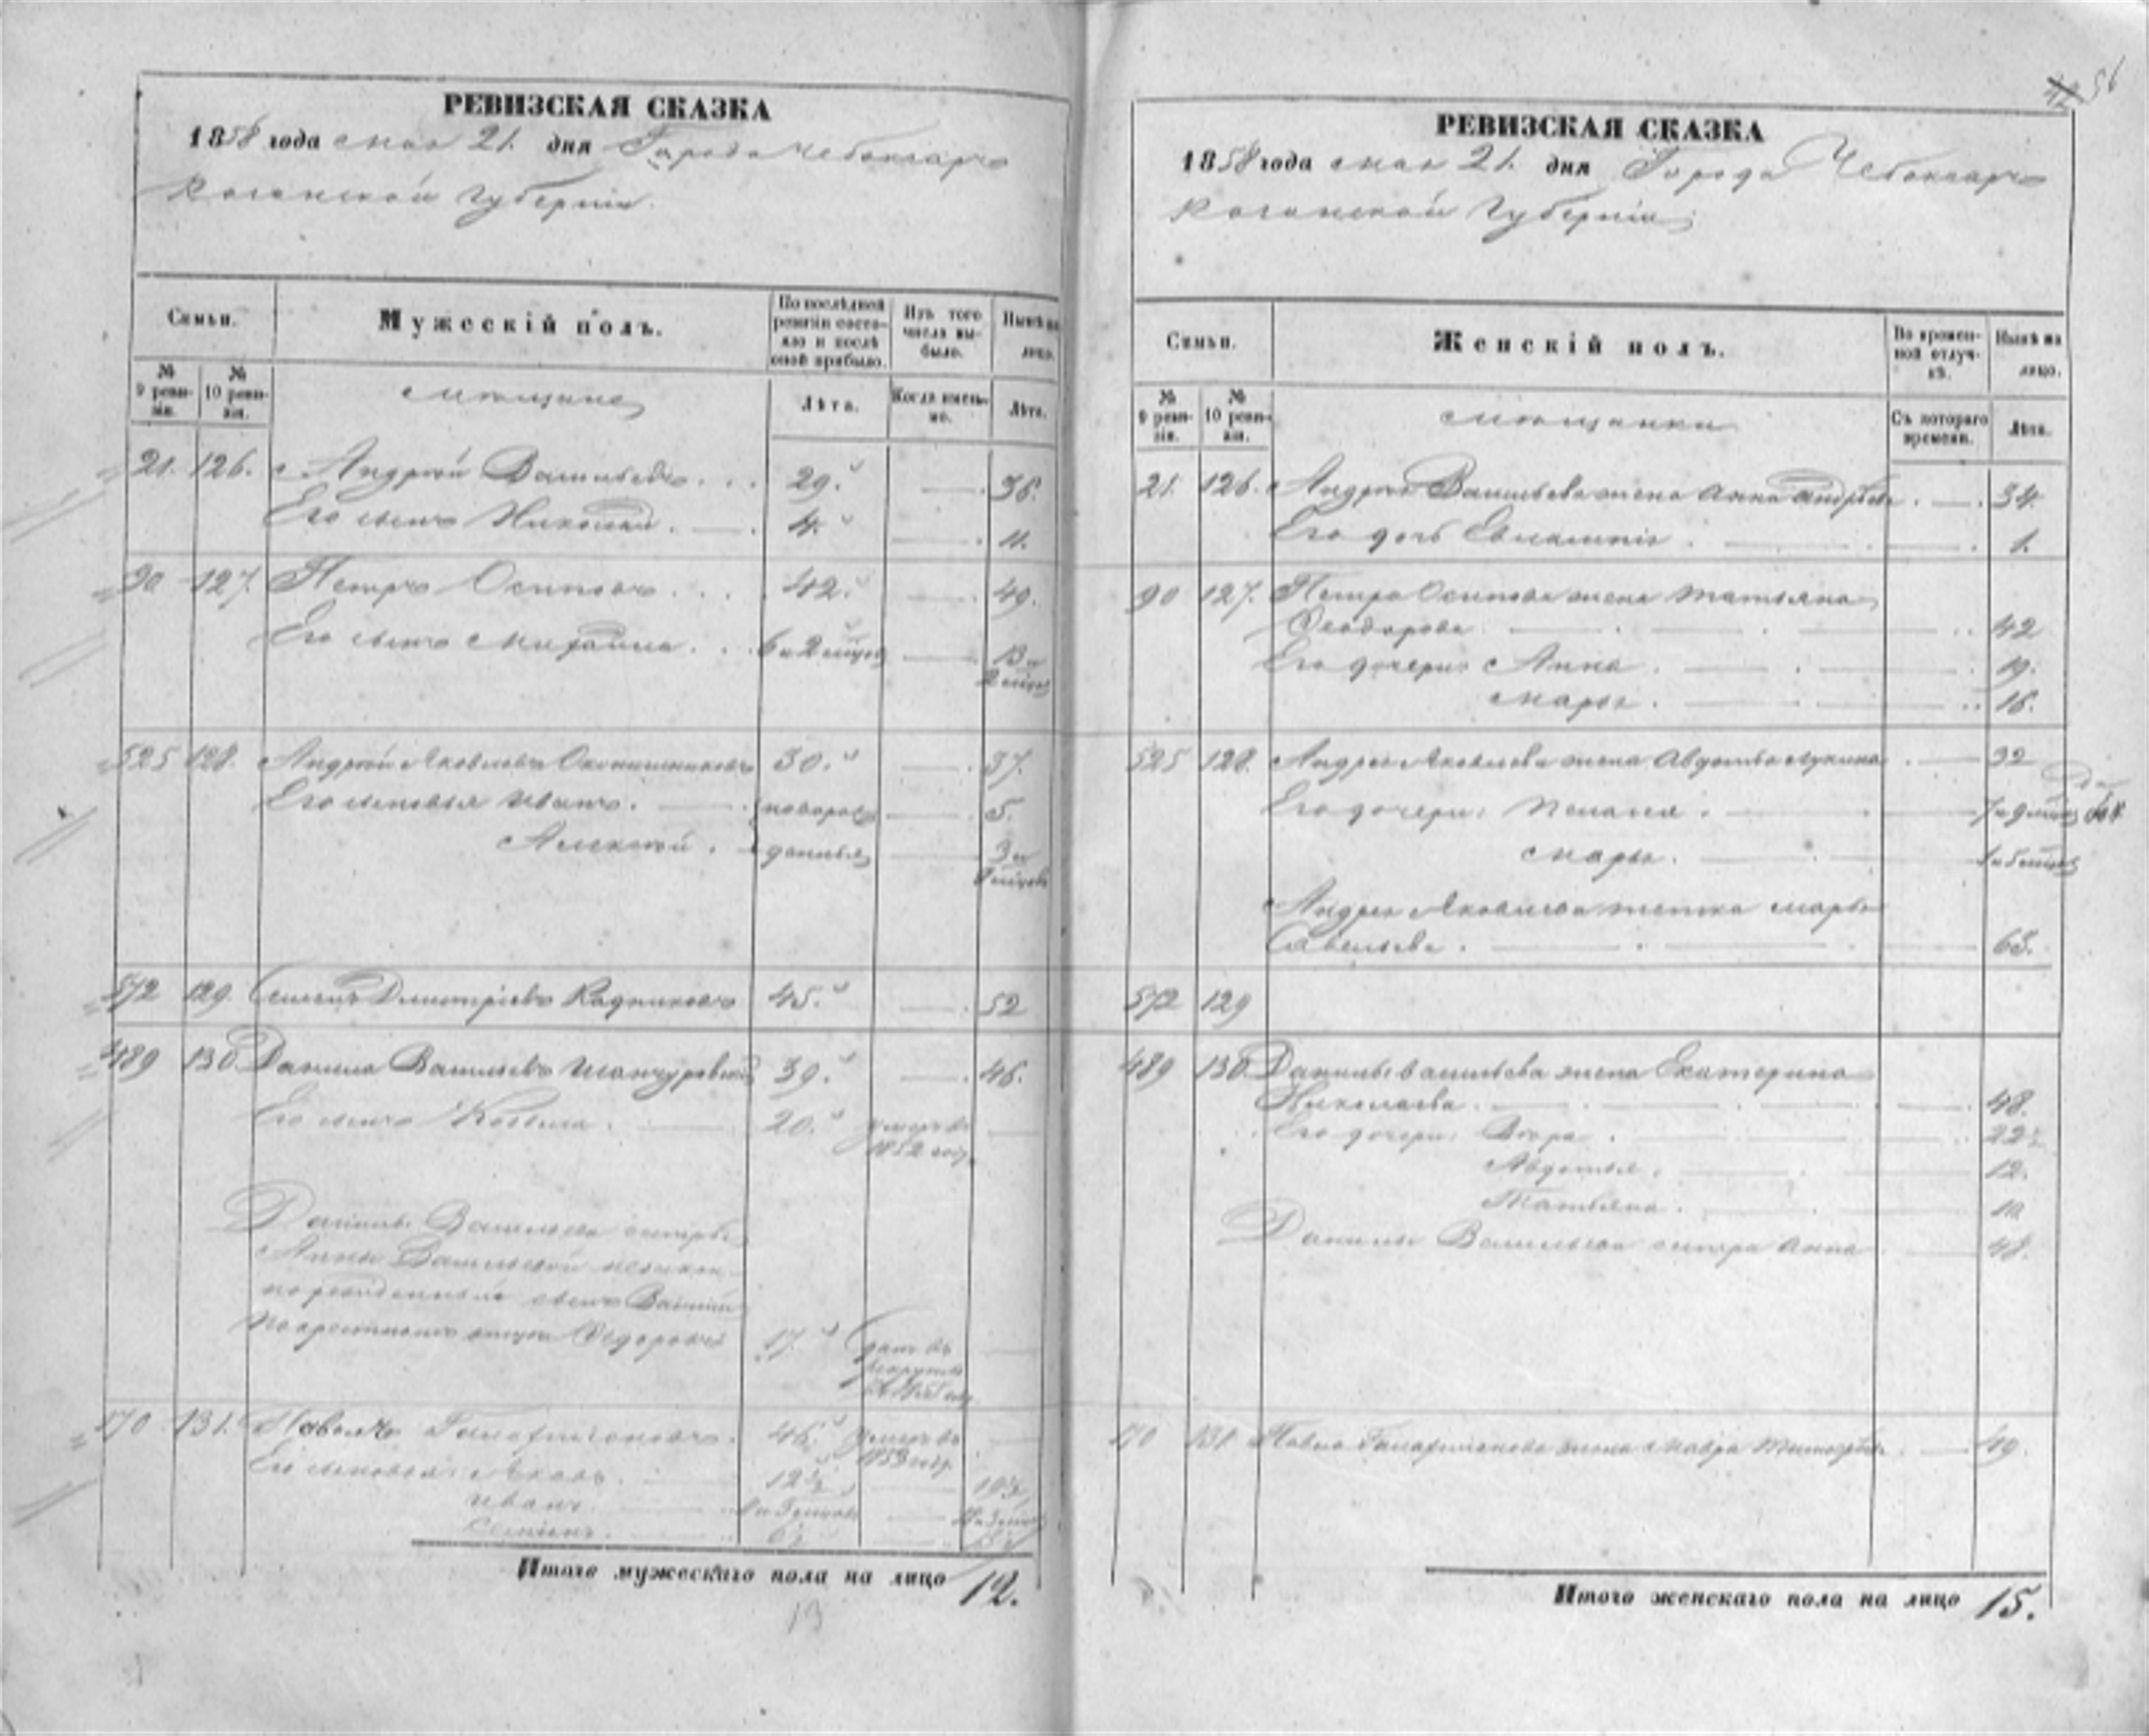 56
РЕВИЗСКАЯ СКАЗКА
1858 года мая 21. дня Города Чебоксаръ
Казанской Губерніи.
Семьи.
Мужескій полъ.
По послѣдней ревизіи состояло и послѣ оной прибыло.
Изъ того числа выбыло.
Нынѣ на лицо.
№ 9 ревизіи.
№ 10 ревизіи.
мѣщане
Лѣта.
Когда именно.
Лѣта.
21. 126. Андрей Васильевъ 29. 36.
Его сынъ Николай. 4. 11.
90 127. Петръ Осиповъ 42. 49.
Его сынъ Михайла. 6 и 2 мѣсяц 13 и
2 мѣсяц
525 128. Андрей Яковлевъ 30. 37.
Его сыновья Иванъ. новорож 5.
Алексѣй. денныя 3 и
572 129. Семенъ Дмитріевъ Кадниковъ 45. 52
489 130. Данила Васильевъ 39. 46.
Его сынъ 20. умеръ въ
1852 году
Данилы Васильева сестры
Анны Васильевой незакон
норожденный сынъ Василій
по крестному отцу Ѳедоровъ 17. сданъ въ
рекруты
170 131. Павелъ 46. умеръ въ
1853 году
Его сыновья: Яковъ. 12½ 19½
Иванъ.
Семенъ.
Итого мужескаго пола на лицо 12.
13
РЕВИЗСКАЯ СКАЗКА
1858 года мая 21. дня Города Чебоксаръ
Казанской Губерніи
Семьи.
Женскій полъ.
Во временной отлучкѣ.
Нынѣ на лицо.
№ 9 ревизіи.
№ 10 ревизіи.
мѣщанки
Съ котораго времени.
Лѣта.
21. 126. Андрея Васильева жена Анна Андрѣева 34.
Его дочь 1.
90 127. Петра Осипова жена Татьяна
Ѳеодорова 42
Его дочери: Анна 19.
Марья. 16.
525 128. Андрея Яковлева жена Авдотья Лукина 32
Его дочери: Пелагея. 7 и 9 мѣсяц
Марья.
Андрея Яковлева тетка Марья
Савельева. 65.
572 129
489 130. Данилы Васильева жена Екатерина
Николаева. 48.
Его дочери: Вѣра 22½
Авдотья. 12.
Татьяна. 10
Данилы Васильева сестра Анна 48.
170 131 Павла жена Мавра Тимофѣева 49.
Итого женскаго пола на лицо 15.